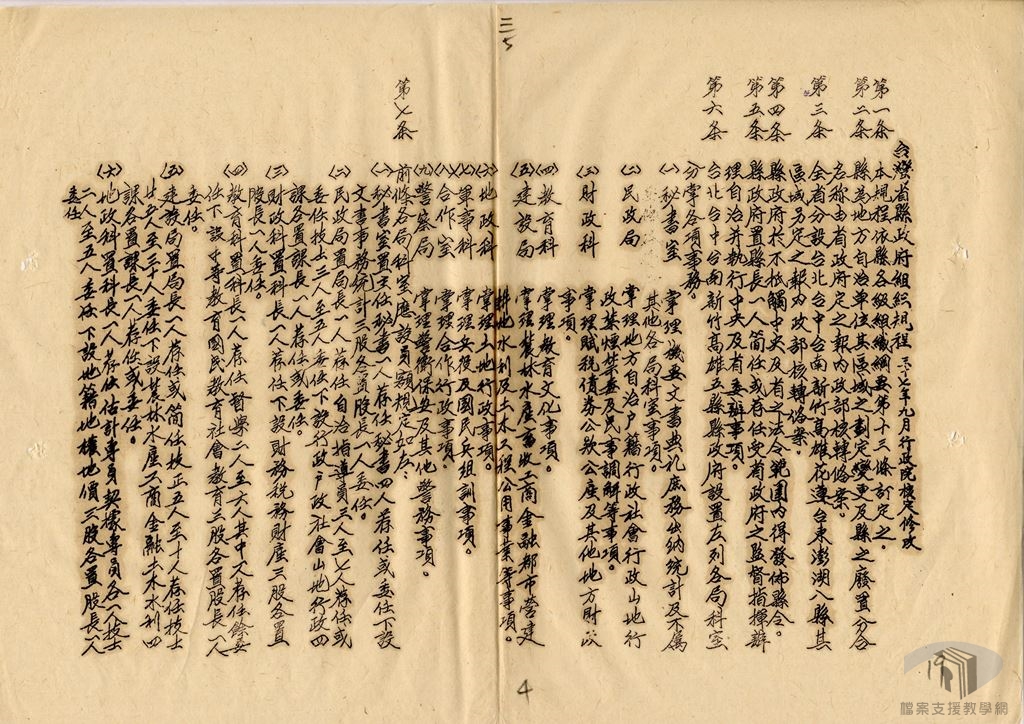 三5
台灣省縣政府組織規程 三十七年九月行政院核定修政
第一条 本規程依縣各級組織綱要第十三條訂定之。
第二条 縣為地方自治單位其區域之劃定變更及縣之廢置分合
名称由省政府定之報內政部核轉俻案
第三条 全省分設台北台中台南新竹高雄花蓮台東澎湖八縣其
區域另定之報內政部核轉俻案。
第四条 縣政府於不抵觸中央及省之法令範圍內得發佈縣令。
第五条 縣政府置縣長一人简任或荐任受省政府之監督指揮辦
理自治并執行中央及省委辦事項。
第六条 台北台中台南新竹高雄五縣縣政府設置左列各局科室
分掌各項事務。
(一)秘書室 掌理機要文書典礼庶務出納統計及不属
其他各局科室事項。
(二)民政局 掌理地方自治户籍行政社會行政山地行
政禁煙禁毒及民事調解等事項。
(三)財政科 掌理賦稅債券公欵公產及其他地方財政
事項。
(四)教育科 掌理教育文化事項。
(五)建設局 掌理農林水產畜牧工商金融都市營建
耕地水利及土木工程公用事業等事項。
(六)地政科 掌理土地行政事項。
(七)軍事科 掌理兵役及國民兵組訓事項。
(八)合作室 掌理合作行政事項。
(九)警察局 掌理警衛保安及其他警務事項。
第七条 前條各局科室應設員額規定如左：
(一)秘書室置主任秘書一人荐任秘書四人荐任或委任下設
文書事務統計三股各置股長一人委任。
(二)民政局置局長一人荐任自治指導員三人至七人荐任或
委任技士三人至五人委任下設行政户政社會山地行政四
課各置課長一人荐任或委任。
(三)財政科置科長一人荐任下設財務稅務財產三股各置
股長一人委任。
(四)教育科置科長一人荐任督學二人至六人其中一人荐任餘委
任下設中等教育國民教育社會教育三股各置股長一人
委任。
(五)建設局置局長一人荐任或简任技正五人至十人荐任技士
廿人至三十人委任下設農林水產工商金融土木水利四
課各置課長一人荐任或委任。
(六)地政科置科長一人荐任估計專員契據專員各一人技士
二人至五人委任下設地籍地權地價三股各置股長一人
委任
4
19
檔案支援教學網